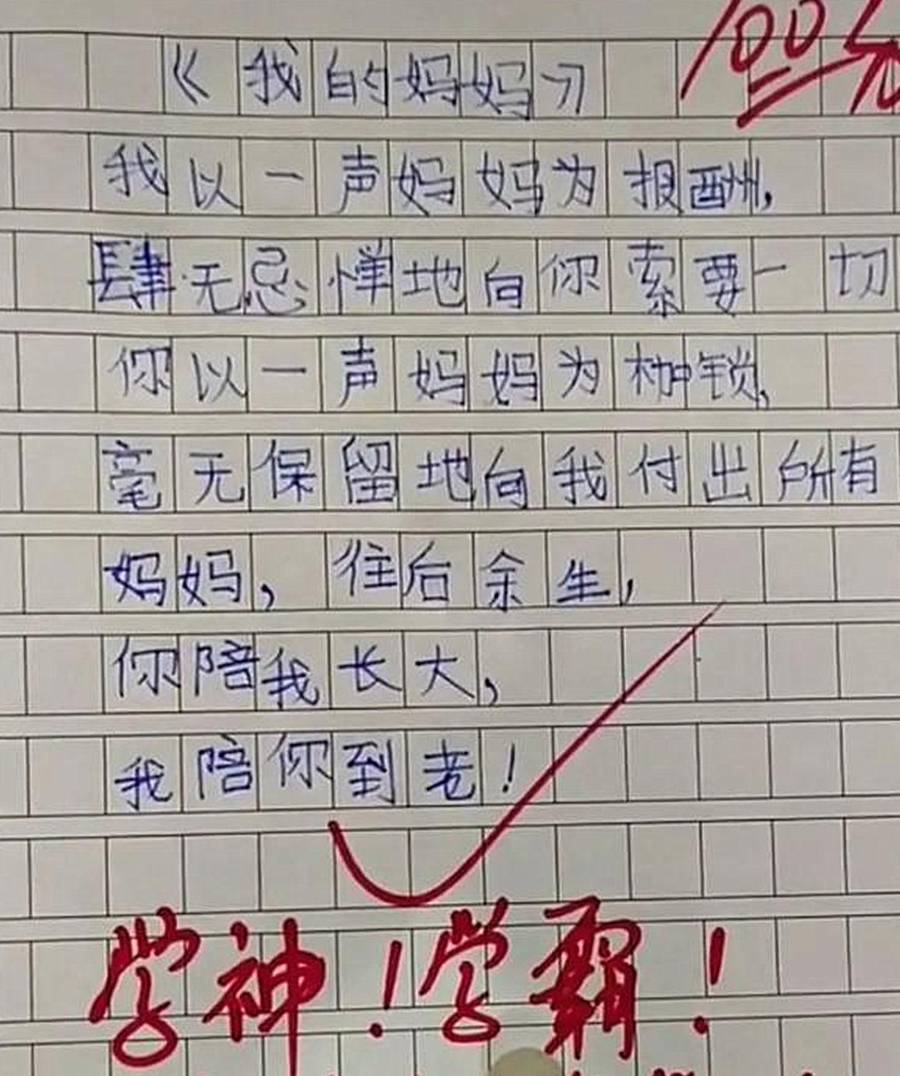 100分
《我的妈妈》
我以一声妈妈为报酬,
肆无忌惮地向你索要一切
你以一声妈妈为枷锁,
毫无保留地向我付出所有
妈妈,往后余生,
你陪我长大,
我陪你到老!
学神!学霸!